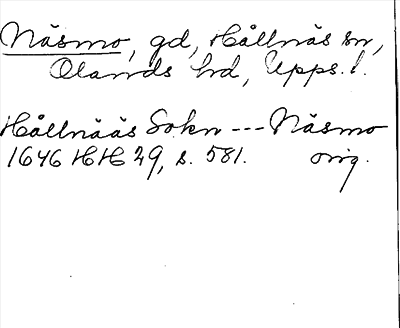 Näsmo, gd, Hållnäs sn,
Olands hd, Upps. l.
Hållnääs Sokn --- Näsmo
1646 HH 29, s. 581. orig.